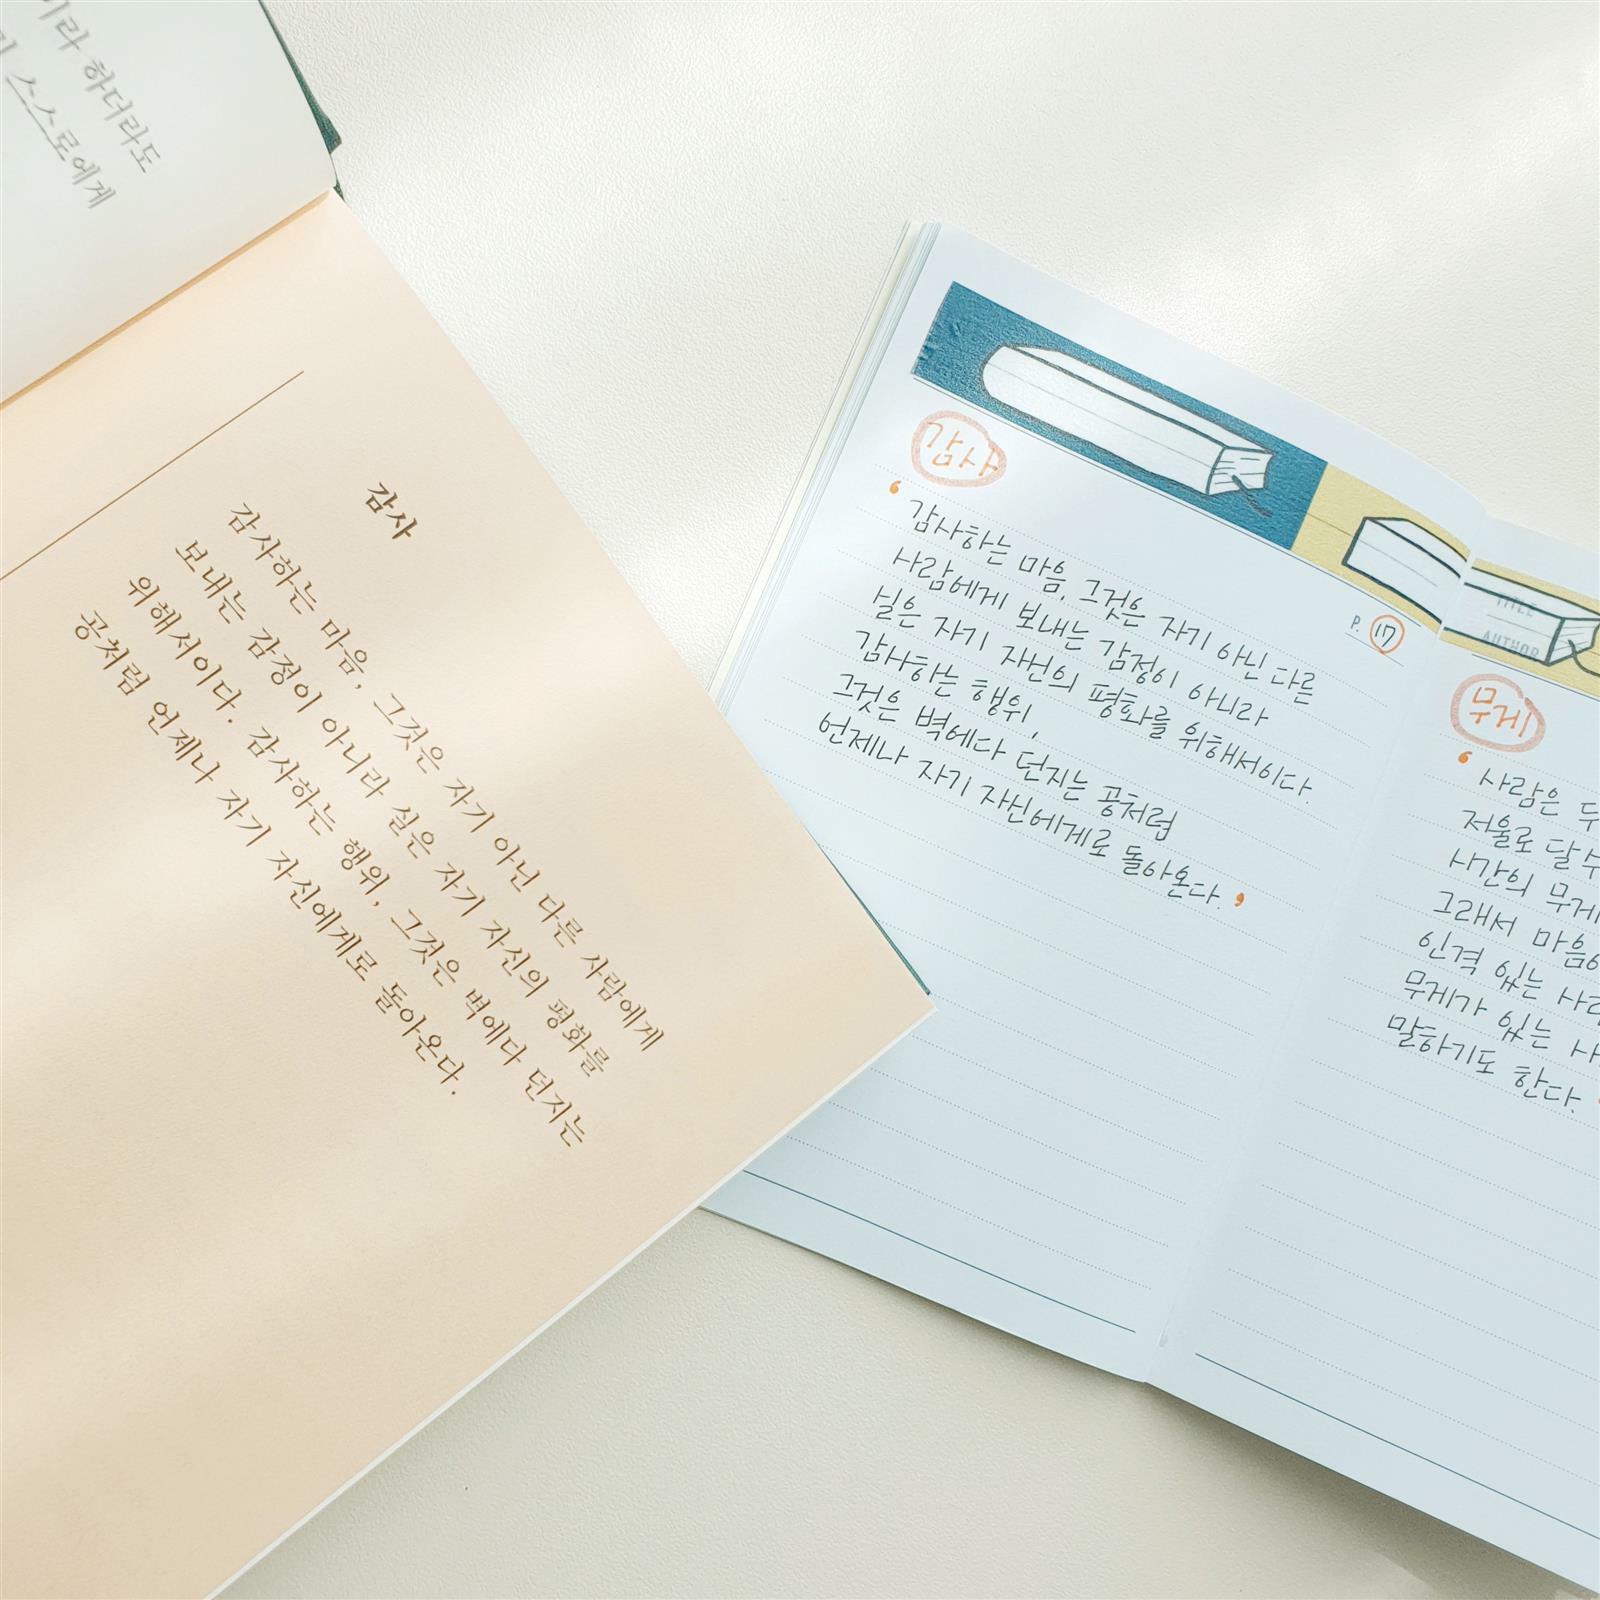 이라 하더라도
스스로에게
감사
감사하는 마음, 그것은 자기 아닌 다른 사람에게
보내는 감정이 아니라 실은 자기 자신의 평화를
위해서이다. 감사하는 행위, 그것은 벽에다 던지는
공처럼 언제나 자기 자신에게로 돌아온다.
감사
‘ 감사하는 마음, 그것은 자기 아닌 다른
사람에게 보내는 감정이 아니라
실은 자기 자신의 평화를 위해서이다.
감사하는 행위,
그것은 벽에다 던지는 공처럼
언제나 자기 자신에게로 돌아온다. ’
P. 17
TITLE
AUTHOR
무게
‘ 사람은 두
저울로 달 수
시간의 무게
그래서 마음이
인격 있는 사람
무게가 있는 사
말하기도 한다. ’